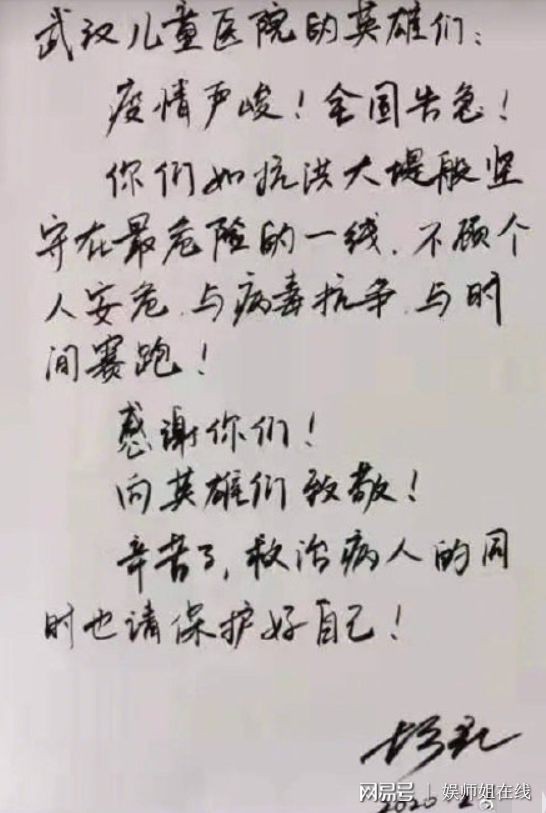 武汉儿童医院的英雄们：
疫情严峻！全国告急！
你们如抗洪大堤般坚
守在最危险的一线、不顾个
人安危、与病毒抗争、与时
间赛跑！
感谢你们！
向英雄们致敬！
辛苦了，救治病人的同
时也请保护好自己！
网易号 | 娱师姐在线
2020